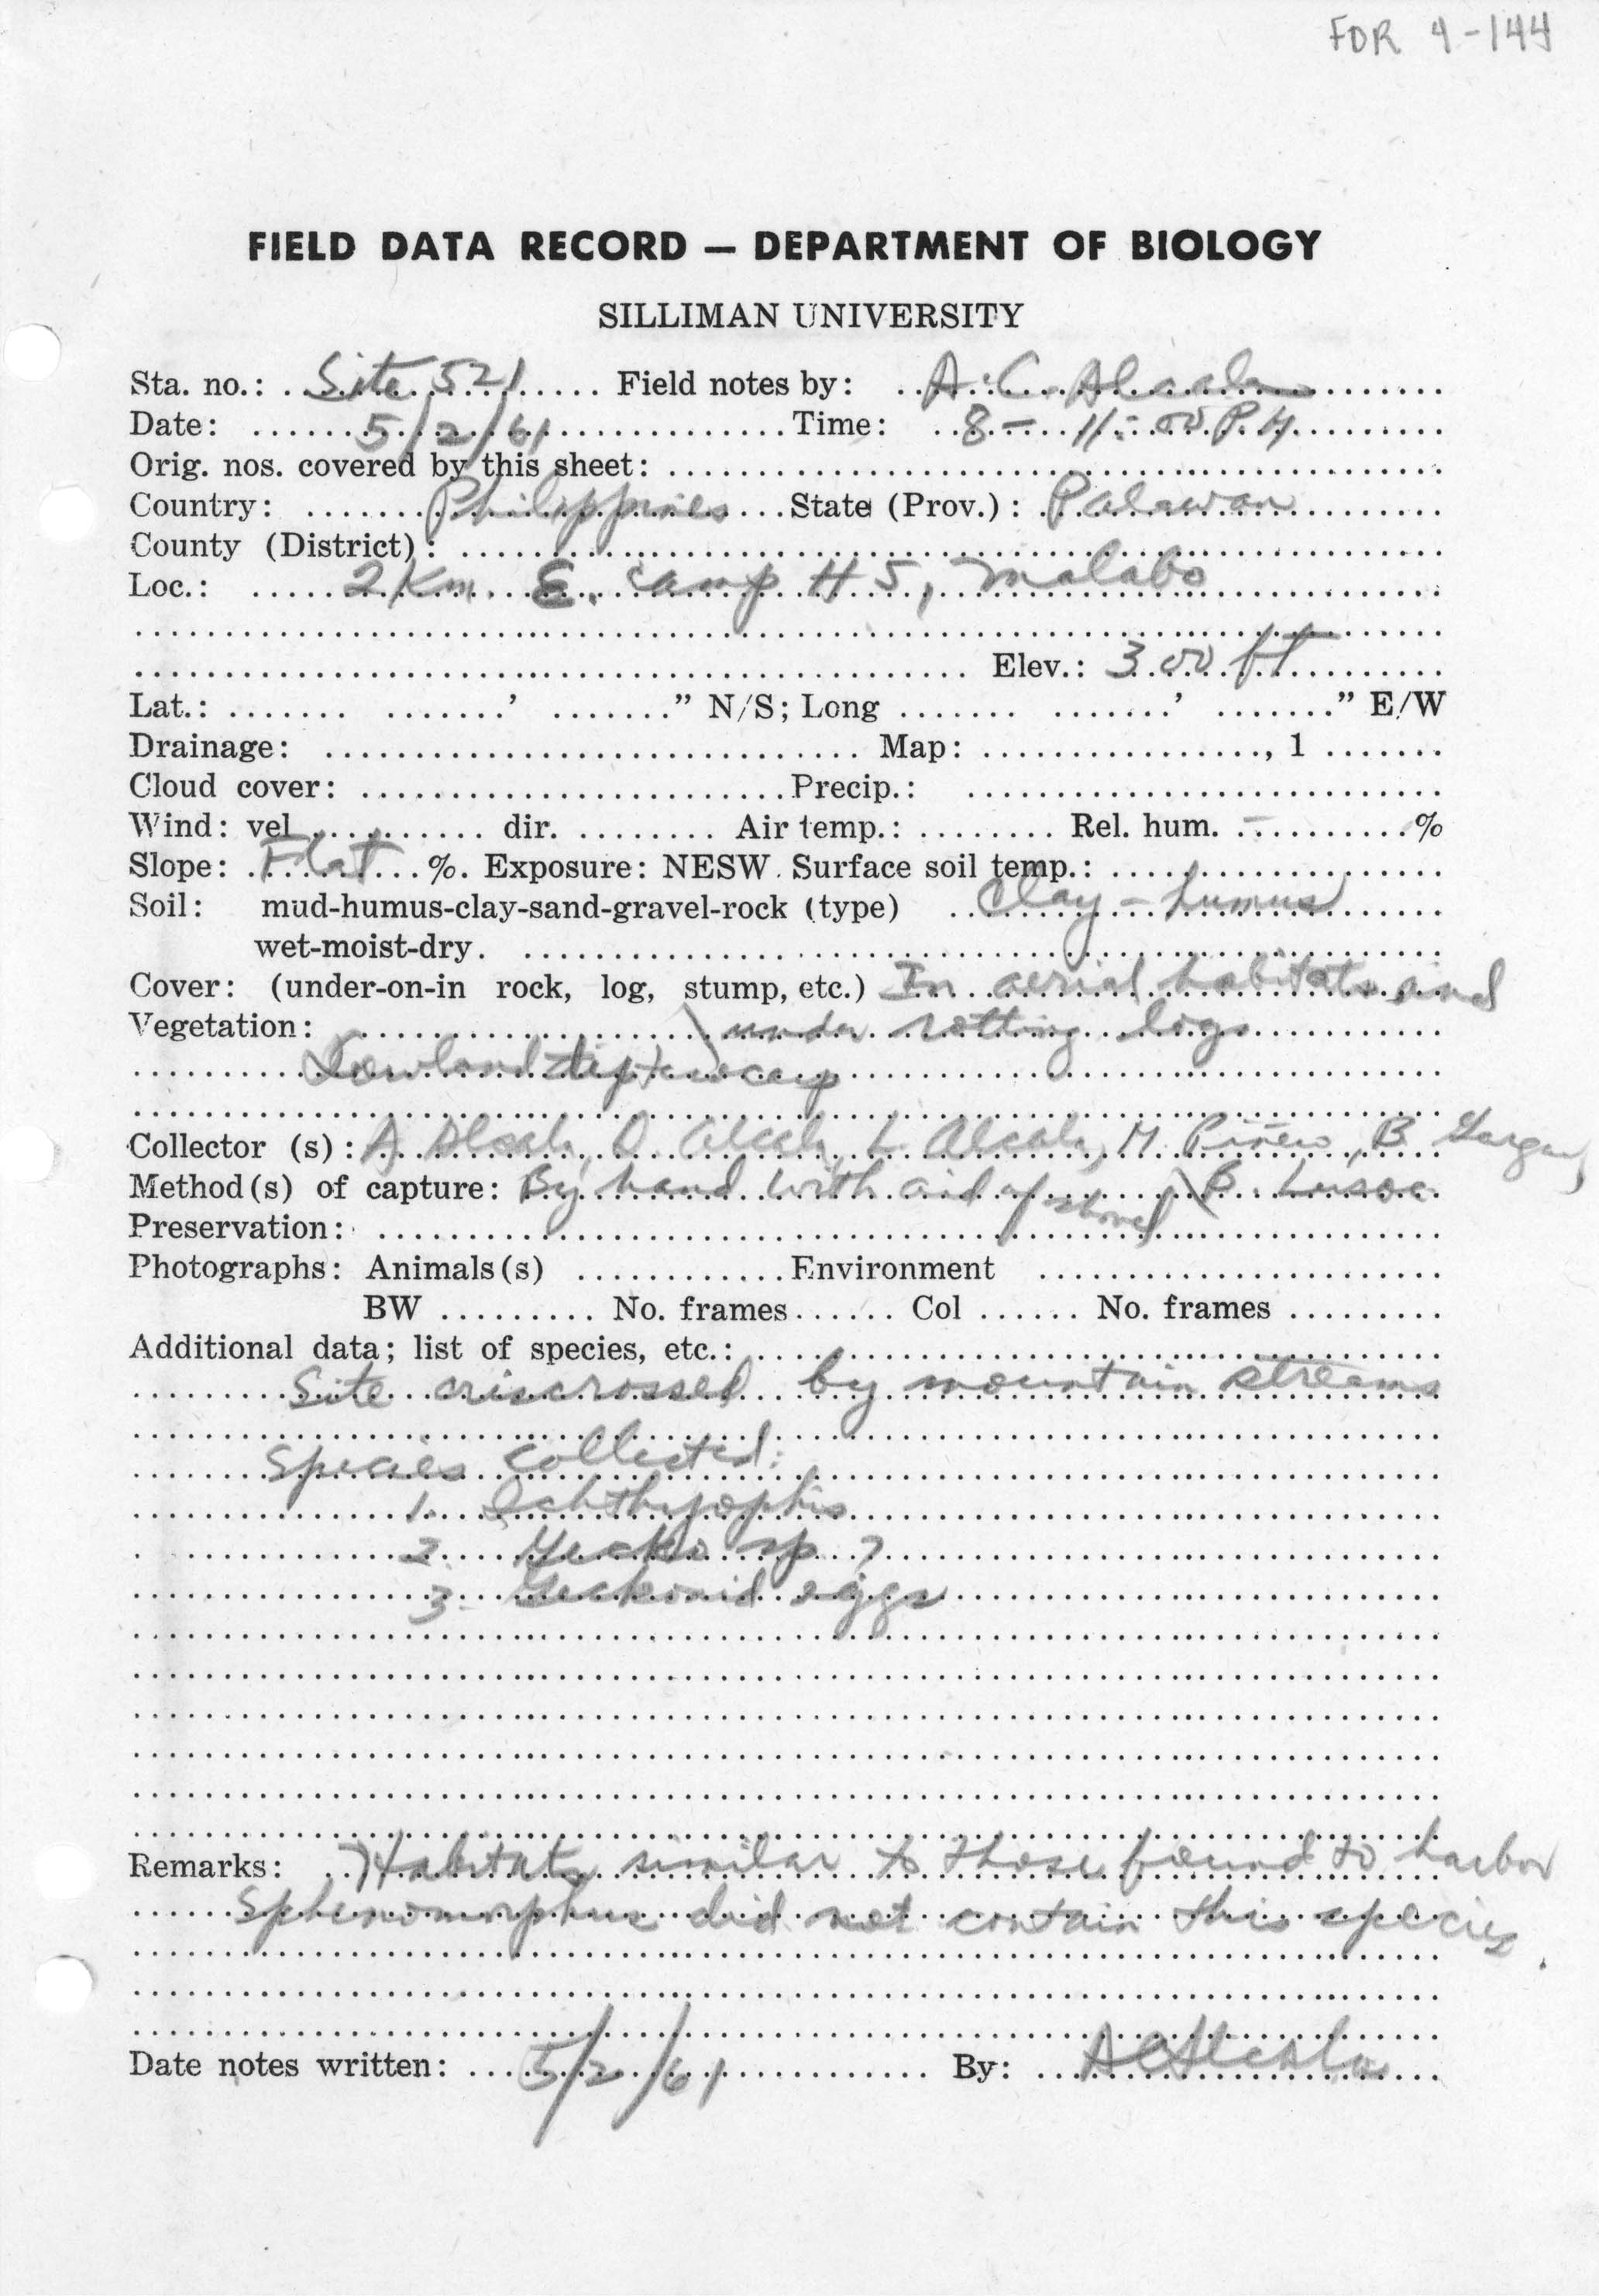 FDR 4-144
FIELD DATA RECORD — DEPARTMENT OF BIOLOGY
SILLIMAN UNIVERSITY
Sta. no.: Site 521 Field notes by: A.C. Alcala
Date: 5/2/61 Time: 8 - 11:00 P.M.
Orig. nos. covered by this sheet:
Country: Philippines State (Prov.): Palawan
County (District):
Loc.: 2 Km. E. camp #5, Malabo
Elev.: 300 ft
Lat.: ' " N/S; Long ' " E/W
Drainage: Map: , 1
Cloud cover: Precip.:
Wind: vel dir. Air temp.: Rel. hum. - %
Slope: Flat %. Exposure: NESW. Surface soil temp.:
Soil: mud-humus-clay-sand-gravel-rock (type) Clay - humus
wet-moist-dry.
Cover: (under-on-in rock, log, stump, etc.) In aerial habitats and
Vegetation: under rotting logs
Lowland dipterocarp
Collector (s): A. Alcala, D. Alcala, L. Alcala, M. B.
Method(s) of capture: By hand with aid of shovel B. Lusoc
Preservation:
Photographs: Animals(s) Environment
BW No. frames Col No. frames
Additional data; list of species, etc.:
Site criscrossed by mountain streams
Species collected:
1. Ichthyophis
2. Gecko sp ?
3. Geckonid eggs
Remarks: Habitats similar to those found to harbor
Sphenomorphus did not contain this species.
Date notes written: 5/2/61 By: ACAlcala